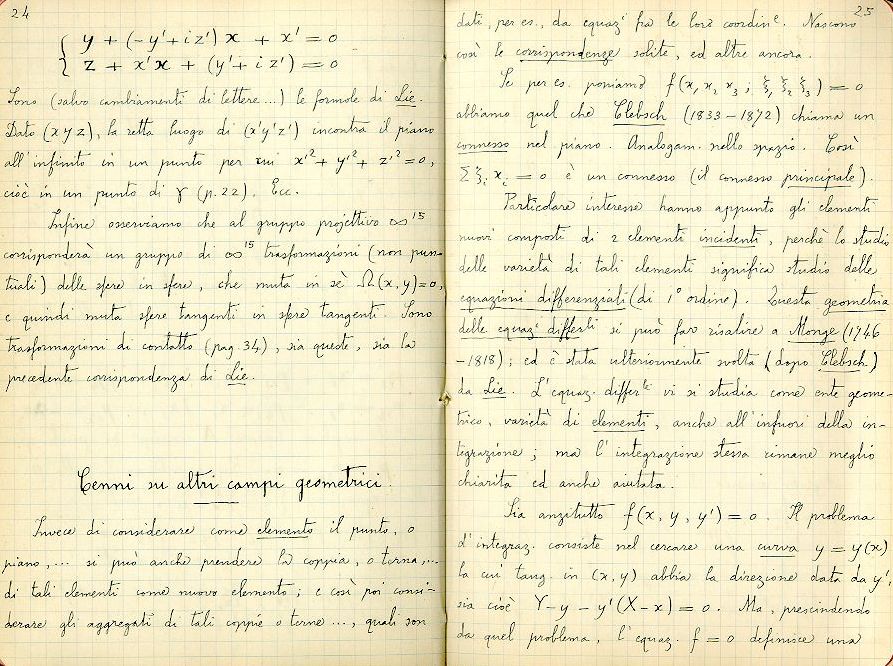 24
{ y + (-y' + iz') x + x' = 0
{ z + x'x + (y' + iz') = 0
Sono (salvo cambiamenti di lettere...) le formole di Lie.
Dato (x y z), la retta luogo di (x'y'z') incontra il piano
all'infinito in un punto per cui x'² + y'² + z'² = 0,
cioè in un punto di γ (p. 22). Ecc.
Infine osserviamo che al gruppo projettivo ∞¹⁵
corrisponderà un gruppo di ∞¹⁵ trasformazioni (non pun-
tuali) delle sfere in sfere, che muta in sè Ω(x,y)=0,
e quindi muta sfere tangenti in sfere tangenti. Sono
trasformazioni di contatto (pag. 34), sia queste, sia la
precedente corrispondenza di Lie.
Cenni su altri campi geometrici.
Invece di considerare come elemento il punto, o
piano,... si può anche prendere la coppia, o terna,...
di tali elementi come nuovo elemento; e così poi consi-
derare gli aggregati di tali coppie o terne..., quali son
25
dati, per es., da equaz¹ fra le loro coordinᵉ. Nascono
così le corrispondenze solite, ed altre ancora.
Se per es. poniamo f(x₁ x₂ x₃; ξ₁ ξ₂ ξ₃) = 0
abbiamo quel che Clebsch (1833-1872) chiama un
connesso nel piano. Analogam. nello spazio. Così
Σ ξᵢ xᵢ = 0 è un connesso (il connesso principale).
Particolare interesse hanno appunto gli elementi
nuovi composti di 2 elementi incidenti, perchè lo studio
delle varietà di tali elementi significa studio delle
equazioni differenziali (di 1º ordine). Questa geometria
delle equaz¹ differˡⁱ si può far risalire a Monge (1746
-1818); ed è stata ulteriormente svolta (dopo Clebsch)
da Lie. L'equaz. differˡᵉ vi si studia come ente geome-
trico, varietà di elementi, anche all'infuori della in-
tegrazione; ma l'integrazione stessa rimane meglio
chiarita ed anche aiutata.
Sia anzitutto f(x, y, y') = 0. Il problema
d'integraz. consiste nel cercare una curva y = y(x)
la cui tang. in (x,y) abbia la direzione data da y',
sia cioè Y-y - y'(X-x) = 0. Ma, prescindendo
da quel problema, l'equaz. f = 0 definisce una